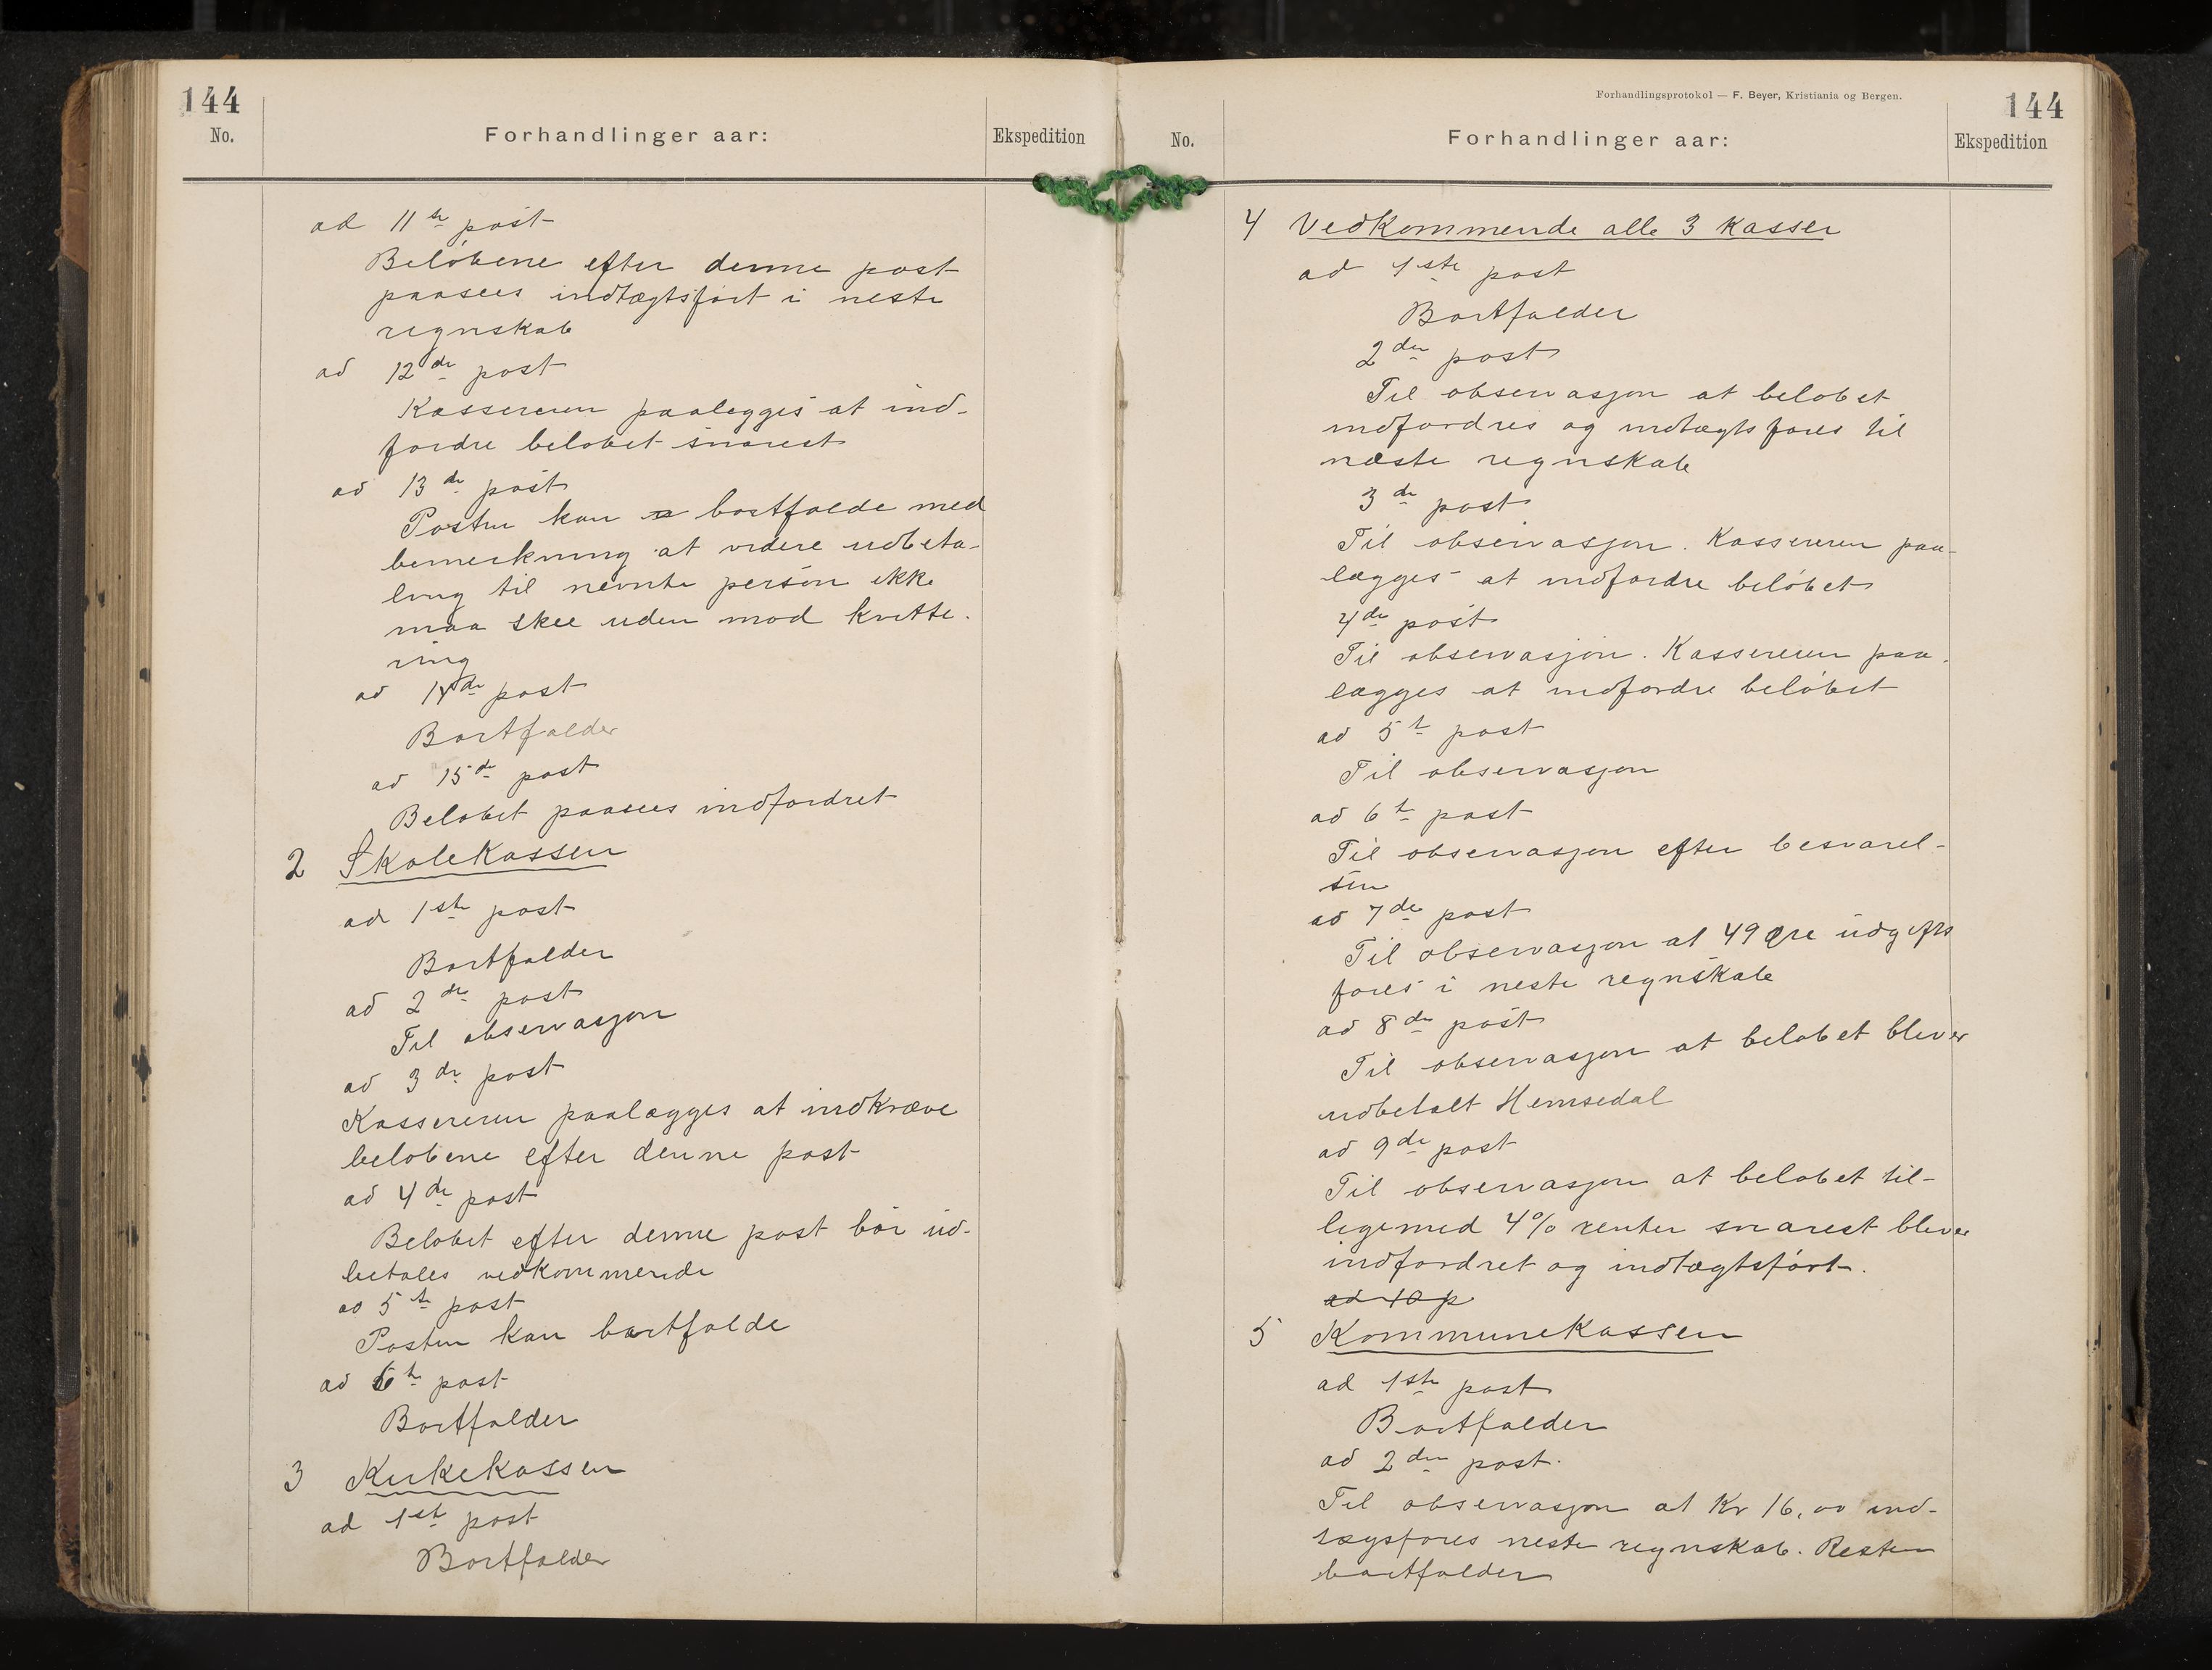 144
No.
Forhandlinger aar:
Ekspedition
ad 11te post
Beløbene efter denne post
paasees indtægtsført i neste
regnskab
ad 12de post
Kassereren paalegges at ind-
fordre beløbet snarest
ad 13de post
Posten kan bortfalde med
bemerkning at videre udbeta-
ling til nevnte person ikke
maa skee uden mod kvitte-
ring
ad 14de post
Bortfalder
ad 15de post
Beløbet paasees indfordret
2 Skolekassen
ad 1ste post
Bortfalder
ad 2den post
Til observasjon
ad 3de post
Kassereren paalægges at indkræve
beløbene efter denne post
ad 4de post
Beløbet efter denne post bør ud-
betales vedkommende
ad 5te post
Posten kan bortfalde
ad 6te post
Bortfalder
3 Kirkekassen
ad 1ste post
Bortfalder
Forhandlingsprotokol — F. Beyer, Kristiania og Bergen.
144
No.
Forhandlinger aar:
Ekspedition
4 Vedkommende alle 3 kasser
ad 1ste post
Bortfalder
2den post
Til observasjon at beløbet
indfordres og indtægtsføres til
næste regnskab
3de post
Til observasjon. Kassereren paa-
lægges at indfordre beløbet
4de post
Til observasjon. Kassereren paa-
lægges at indfordre beløbet
ad 5te post
Til observasjon
ad 6te post
Til observasjon efter besvarel-
sen
ad 7de post
Til observasjon at 49 øre udgifts
føres i neste regnskab
ad 8de post
Til observasjon at beløbet bliver
udbetalt Hemsedal
ad 9de post
Til observasjon at beløbet til-
ligemed 4% renter snarest bliver
indfordret og indtægtsført.
ad 10 p
5 Kommunekassen
ad 1ste post
Bortfalder
ad 2den post.
Til observasjon at Kr 16,00 ind-
tægsføres neste regnskab. Resten
bortfalder